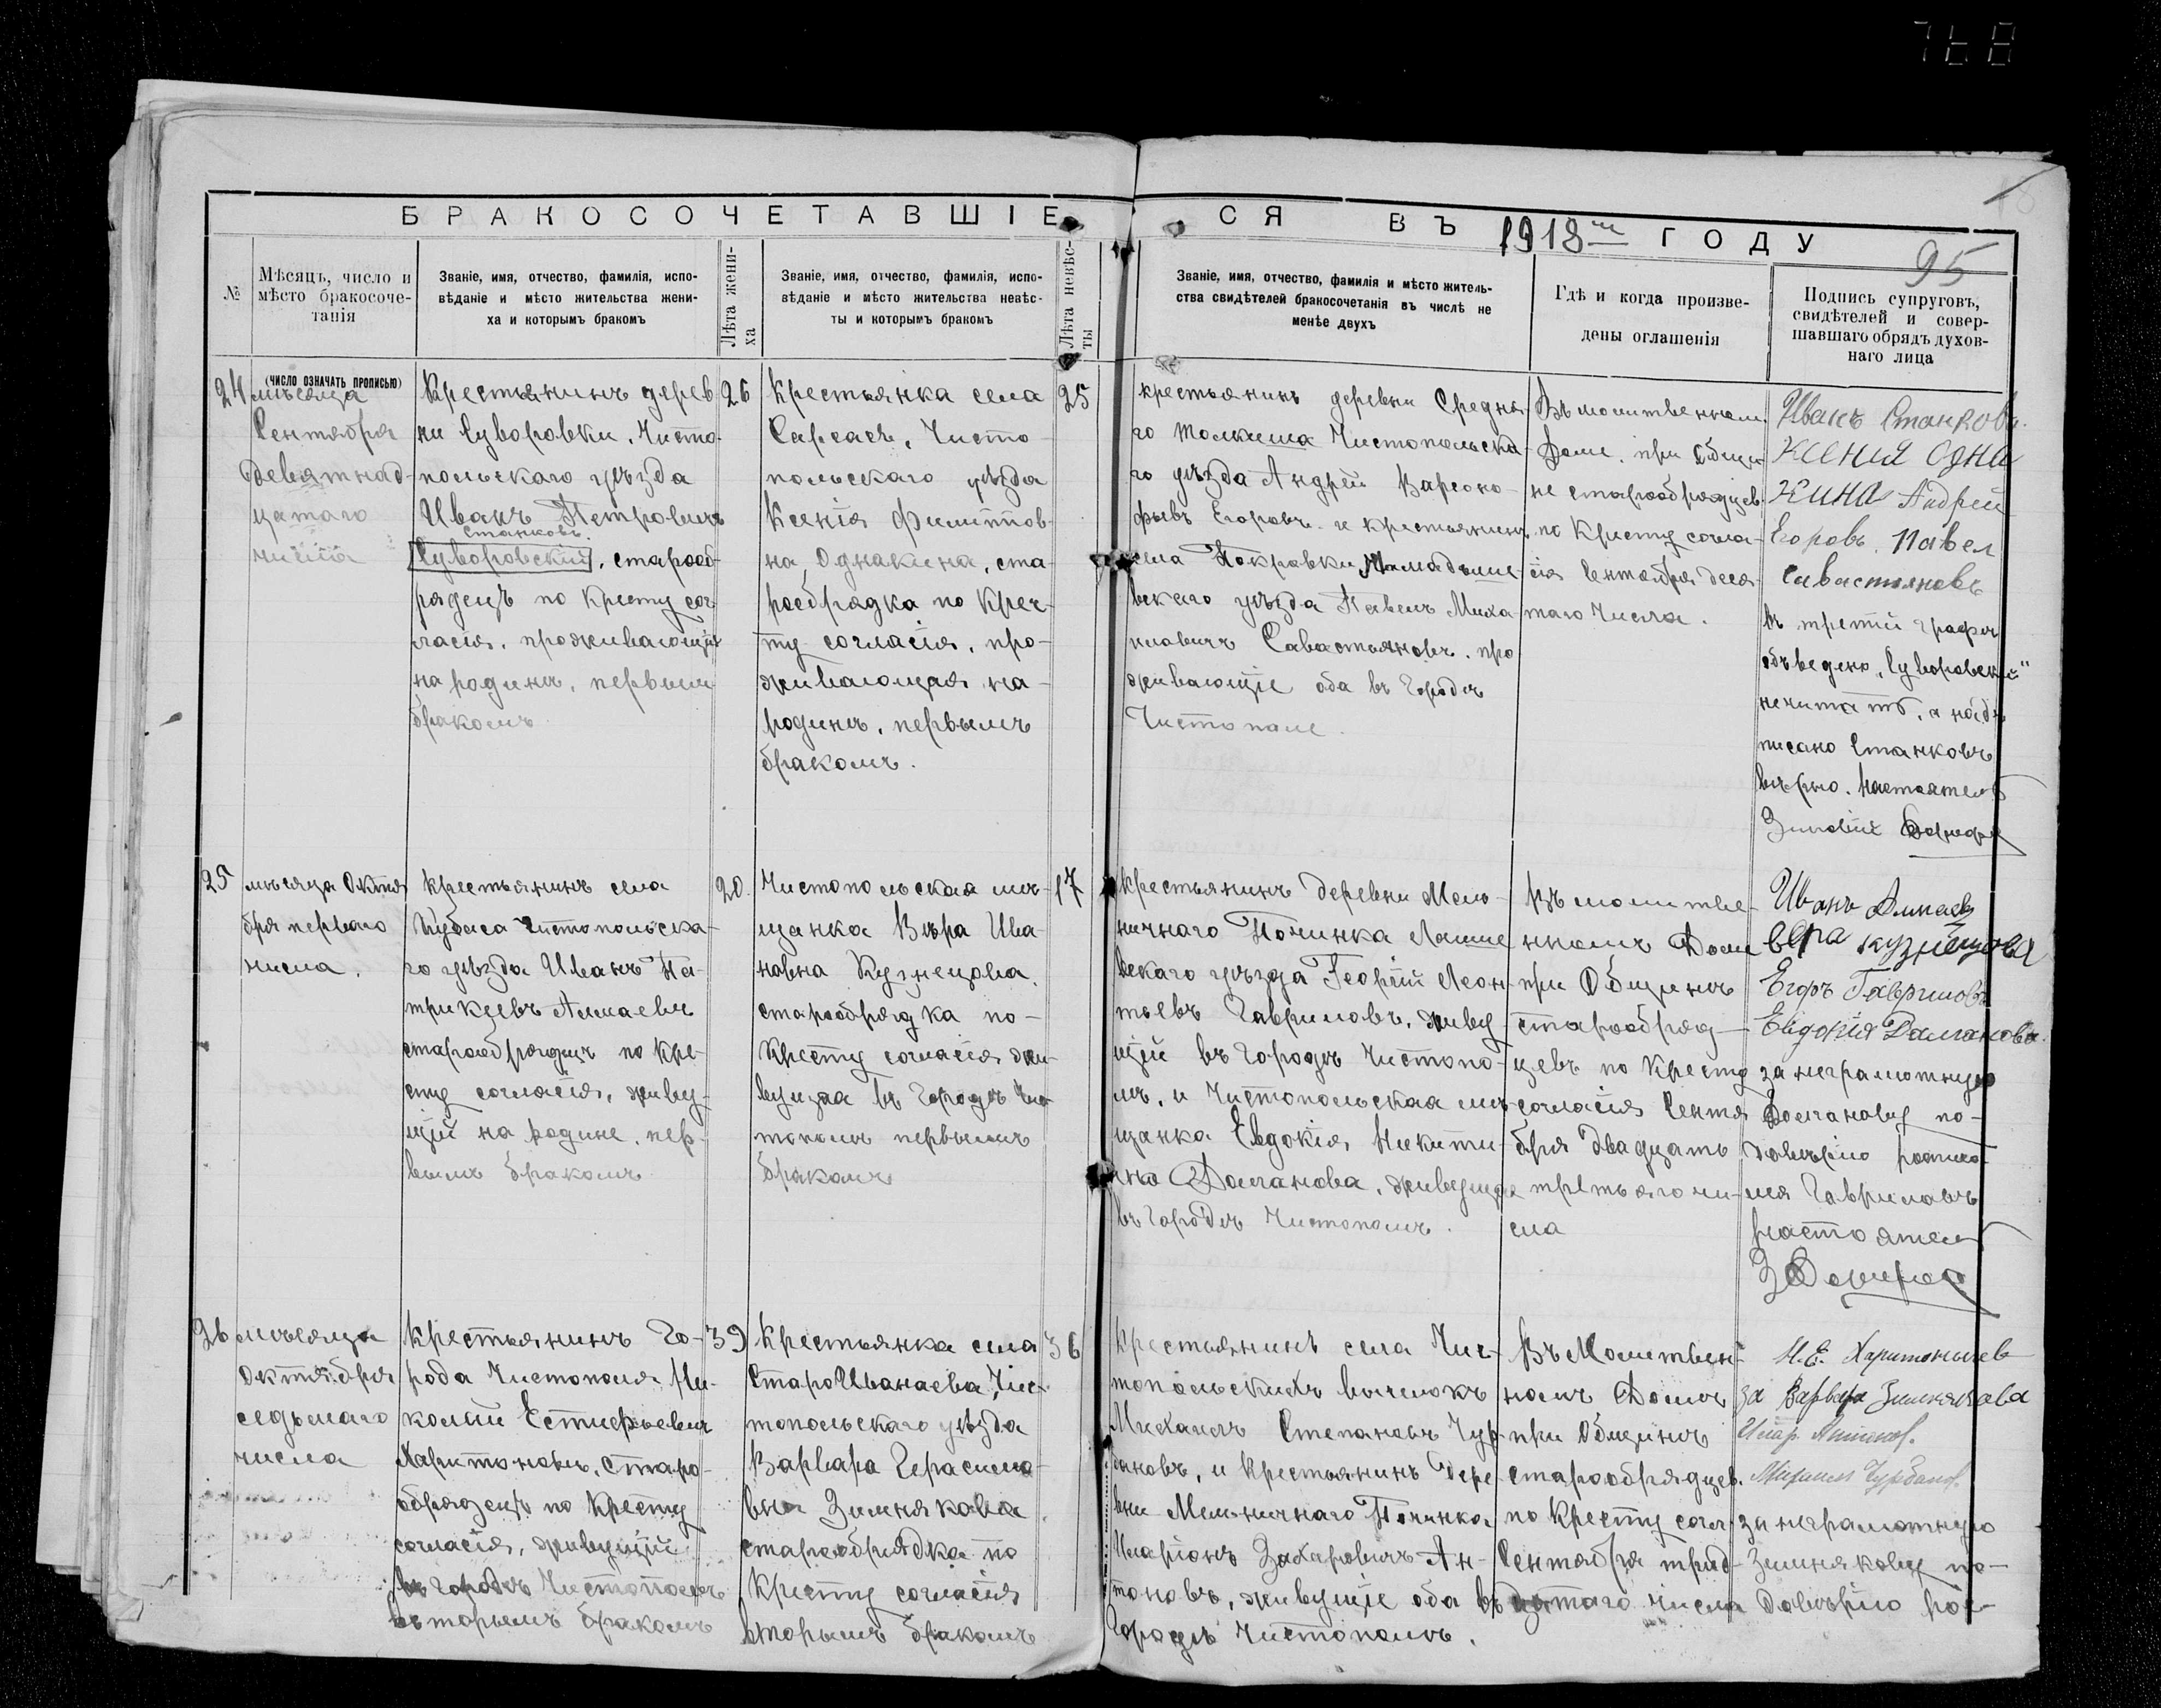 БРАКОСОЧЕТАВШІЕСЯ ВЪ 1918 ГОДУ
95
№
Мѣсяцъ, число и
мѣсто бракосоче-
танія
(число означать прописью)
Званіе, имя, отчество, фамилія, испо-
вѣданіе и мѣсто жительства жени-
ха и которымъ бракомъ
Лѣта жени-
ха
Званіе, имя, отчество, фамилія, испо-
вѣданіе и мѣсто жительства невѣс-
ты и которымъ бракомъ
Лѣта невѣс-
ты
Званіе, имя, отчество, фамилія и мѣсто житель-
ства свидѣтелей бракосочетанія въ числѣ не
менѣе двухъ
Гдѣ и когда произве-
дены оглашенія
Подпись супруговъ,
свидѣтелей и совер-
шавшаго обрядъ духов-
наго лица
24
мѣсяца
Сентября
девятнад-
цатаго
числа
Крестьянинъ дерев
ни Суворовки, Чисто-
польскаго уѣзда
Иванъ Петровичъ
Станковъ
Суворовский, старооб-
рядецъ по Кресту сог
ласія, проживающій
на родинѣ, первымъ
бракомъ
26
Крестьянка села
Сарсасъ, Чисто-
польскаго уѣзда
Ксенія Филиппов-
на Однакина, ста-
рообрядка по Крес-
ту согласія, про-
живающая на-
родинѣ, первымъ
бракомъ.
25
крестьянинъ деревни Средня-
го Толкиша Чистопольска-
го уѣзда Андрей Варсоно-
фьевъ Егоровъ и крестьянинъ
села Покровки Мамадыше
вскаго уѣзда Павелъ Миха
иловичъ Савастьяновъ, про
живающіе оба въ Городѣ
Чистополе.
Въ молитвенном
Доме, при Общи
не старообрядцев
по Кресту согла-
сія Сентября деся
таго Числа.
Иванъ Станковъ.
Ксения Одна
кина Андрей
Егоровъ. Павел
Савастьяновъ
въ третій графѣ
обведено „Суворовский"
нечитать, а надъ
писано Станковъ
вѣрно. Настоятель
25
мѣсяца Октя
бря перваго
числа.
Крестьянинъ села
Кубаса Чистопольска-
го уѣзда Иванъ Па-
трикѣевъ Алмаевъ
старообрядецъ по Кре-
сту согласія, живу-
щій на родине, пер-
вымъ бракомъ
20.
Чистопольская мѣ-
щанка Вѣра Ива-
новна Кузнецова,
старообрядка по-
Кресту согласія жи-
вущая въ Городѣ Чис
тополѣ первымъ
бракомъ
17
Крестьянинъ деревни Мель-
ничнаго Починка Лаише
вскаго уѣзда Георгій Леон-
тьевъ Гавриловъ, живу
щій въ Городѣ Чистопо-
лѣ, и Чистопольская мѣ-
щанка Евдокія Никити-
чна Долганова, живущая
въ Городѣ Чистополѣ.
Въ молитве-
нномъ Доме
при Общинѣ
старообряд-
цевъ по Кресту
согласія Сентя
бря двадцать
третьяго чи-
сла
Иванъ Алмаев
Вера Кузнецова
Егоръ Гавриловъ
Евдокія Долганова.
за неграмотную
Долганову по-
довѣрію росписал
ся Гавриловъ
настоятель
26
мѣсяца
Октября
седьмаго
числа
Крестьянинъ Го-
рода Чистополя Ни-
колай Естифѣевичъ
Харитоновъ, старо-
обрядецъ по Кресту
согласія, живущій
въ Городѣ Чистополѣ
вторымъ бракомъ
39
Крестьянка села
Стараго Иванаева, Чис-
топольскаго уѣзда
Варвара Герасимо-
вна Зимнякова
старообрядка по
Кресту согласія
вторымъ бракомъ
36
Крестьянинъ села Чис-
топольскихъ выселокъ
Михаилъ Степановъ Чур-
бановъ, и Крестьянинъ Дере-
вни Мельничнаго Починка
Иларіонъ Захаровичъ Ан-
тоновъ, живущіе оба въ
Городѣ Чистополѣ.
Въ Молитвен-
номъ Домѣ
при Общинѣ
старообрядцев.
по Кресту согл-
Сентября трид-
цатаго числа
за Варвара Зимнякова
Илар. Антонов.
Михаил Чурбанов.
за неграмотную
Зимнякову по-
довѣрію рос-